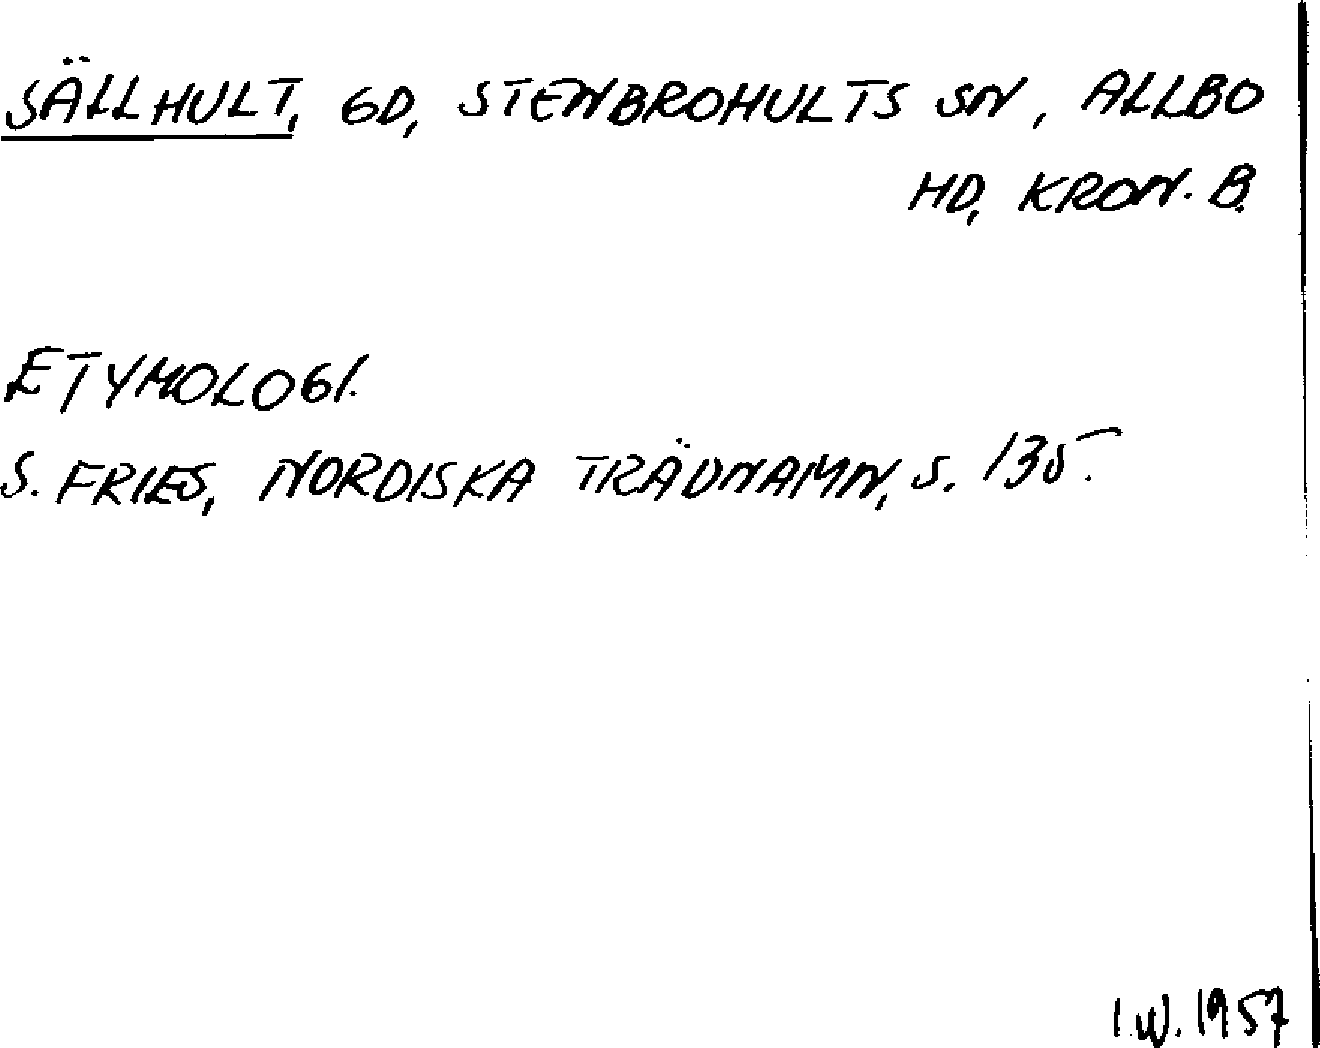 SÄLLHULT, GD, STENBROHULTS SN, ALLBO
HD, KRON. B.
ETYMOLOGI.
S. FRIES, NORDISKA TRÄDNAMN, S. 135.
I.W. 1957